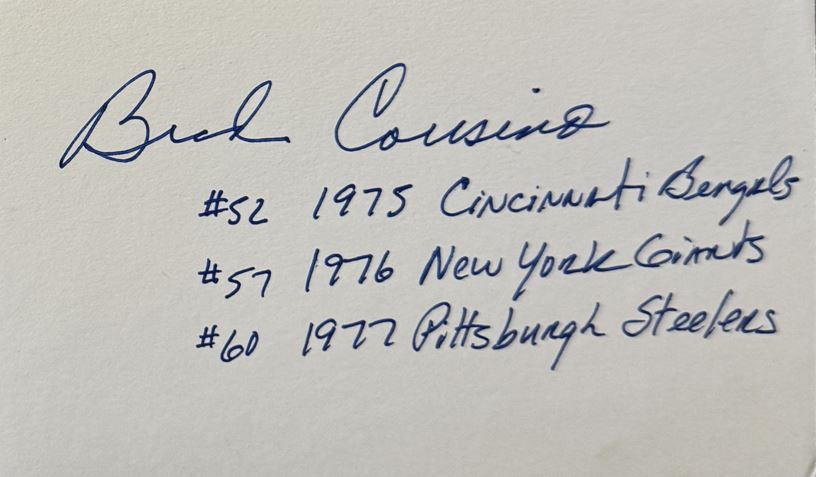 Brad Cousino
#52 1975 Cincinnati Bengals
#57 1976 New York Giants
#60 1977 Pittsburgh Steelers